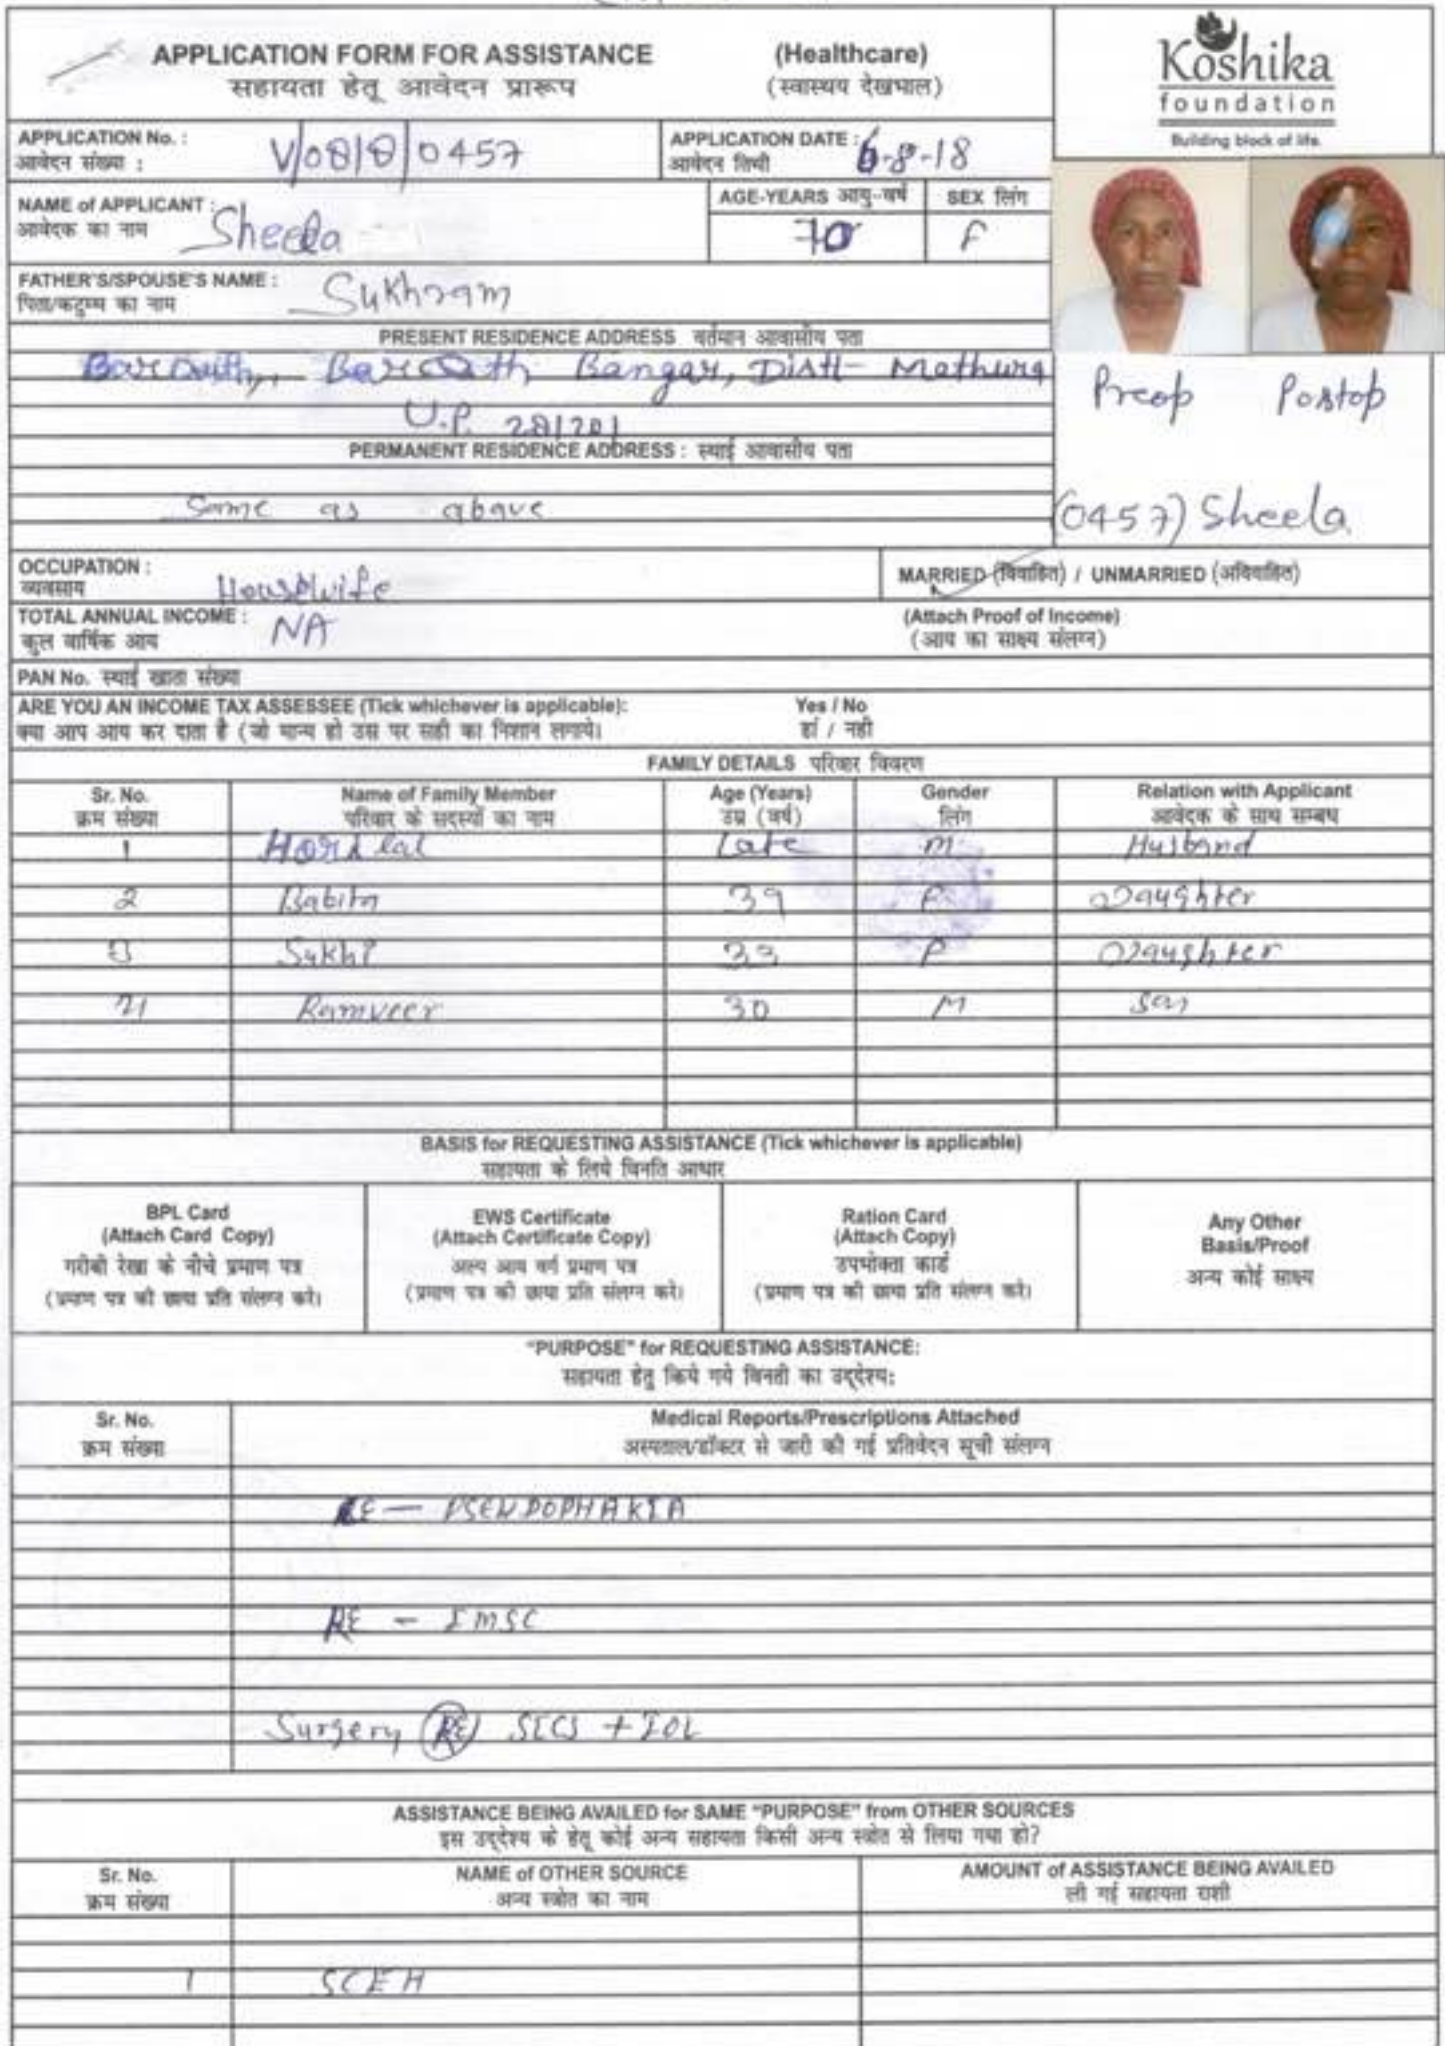 APPLICATION FORM FOR ASSISTANCE (Healthcare)
सहायता हेतू आवेदन प्रारूप (स्वास्थय देखभाल)
Koshika
foundation
Building block of life.
APPLICATION No. : V/0818/0457
आवेदन संख्या :
APPLICATION DATE : 6-8-18
आवेदन तिथी
NAME of APPLICANT : Sheela
आवेदक का नाम
AGE-YEARS आयु-वर्ष 70
SEX लिंग F
FATHER'S/SPOUSE'S NAME : Sukhram
पिता/कटुम्ब का नाम
PRESENT RESIDENCE ADDRESS वर्तमान आवासीय पता
Bangar, Distt- Mathura
U.P. 281201
Preop Postop
PERMANENT RESIDENCE ADDRESS : स्थाई आवासीय पता
Same as above
(0457) Sheela
OCCUPATION : Housewife
व्यवसाय
MARRIED (विवाहित) / UNMARRIED (अविवाहित)
TOTAL ANNUAL INCOME : NA
कुल वार्षिक आय
(Attach Proof of Income)
(आय का साक्ष्य संलग्न)
PAN No. स्थाई खाता संख्या
ARE YOU AN INCOME TAX ASSESSEE (Tick whichever is applicable): Yes / No
क्या आप आय कर दाता है (जो मान्य हो उस पर सही का निशान लगाये। हां / नही
FAMILY DETAILS परिवार विवरण
Sr. No. Name of Family Member Age (Years) Gender Relation with Applicant
क्रम संख्या परिवार के सदस्यों का नाम उम्र (वर्ष) लिंग आवेदक के साथ सम्बध
1 lal Late M Husband
2 Babita 39 F Daughter
3 Sukhi 33 F Daughter
4 Ramveer 30 M Son
BASIS for REQUESTING ASSISTANCE (Tick whichever is applicable)
सहायता के लिये विनति आधार
BPL Card
(Attach Card Copy)
गरीबी रेखा के नीचे प्रमाण पत्र
(प्रमाण पत्र की छाया प्रति संलग्न करे।
EWS Certificate
(Attach Certificate Copy)
अल्प आय वर्ग प्रमाण पत्र
(प्रमाण पत्र की छाया प्रति संलग्न करे।
Ration Card
(Attach Copy)
उपभोक्ता कार्ड
(प्रमाण पत्र की छाया प्रति संलग्न करे।
Any Other
Basis/Proof
अन्य कोई साक्ष्य
"PURPOSE" for REQUESTING ASSISTANCE:
सहायता हेतु किये गये विनती का उद्देश्य:
Sr. No. Medical Reports/Prescriptions Attached
क्रम संख्या अस्पताल/डॉक्टर से जारी की गई प्रतिवेदन सूची संलग्न
RE - PSENDOPHAKIA
RE - IMSC
Surgery RE SICS + IOL
ASSISTANCE BEING AVAILED for SAME "PURPOSE" from OTHER SOURCES
इस उद्देश्य के हेतू कोई अन्य सहायता किसी अन्य स्त्रोत से लिया गया हो?
Sr. No. NAME of OTHER SOURCE AMOUNT of ASSISTANCE BEING AVAILED
क्रम संख्या अन्य स्त्रोत का नाम ली गई सहायता राशी
1 SCEH